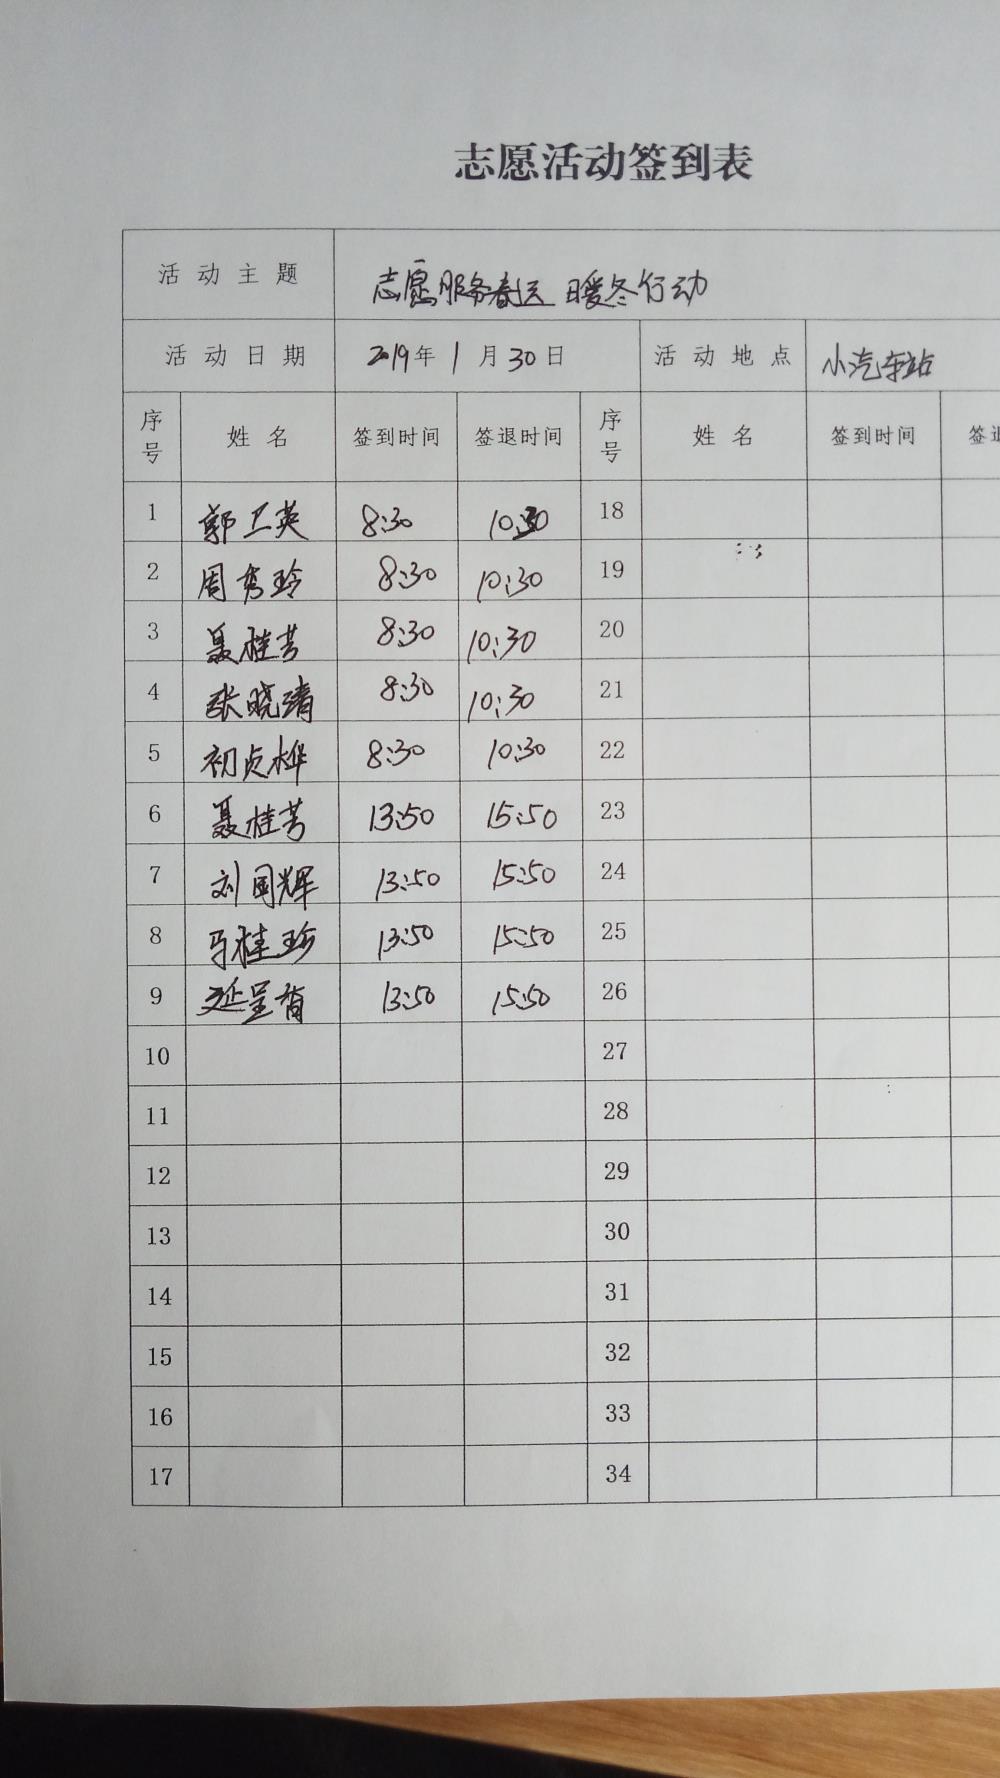 志愿活动签到表
活动主题 志愿服务春运 暖冬行动
活动日期 2019年1月30日 活动地点 小汽车站
序号 姓名 签到时间 签退时间 序号 姓名 签到时间 签退
1 郭卫英 8:30 10:30 18
2 周秀玲 8:30 10:30 19
3 聂桂芳 8:30 10:30 20
4 张晓清 8:30 10:30 21
5 初贞桦 8:30 10:30 22
6 聂桂芳 13:50 15:50 23
7 刘国辉 13:50 15:50 24
8 马桂珍 13:50 15:50 25
9 13:50 15:50 26
10 27
11 28
12 29
13 30
14 31
15 32
16 33
17 34